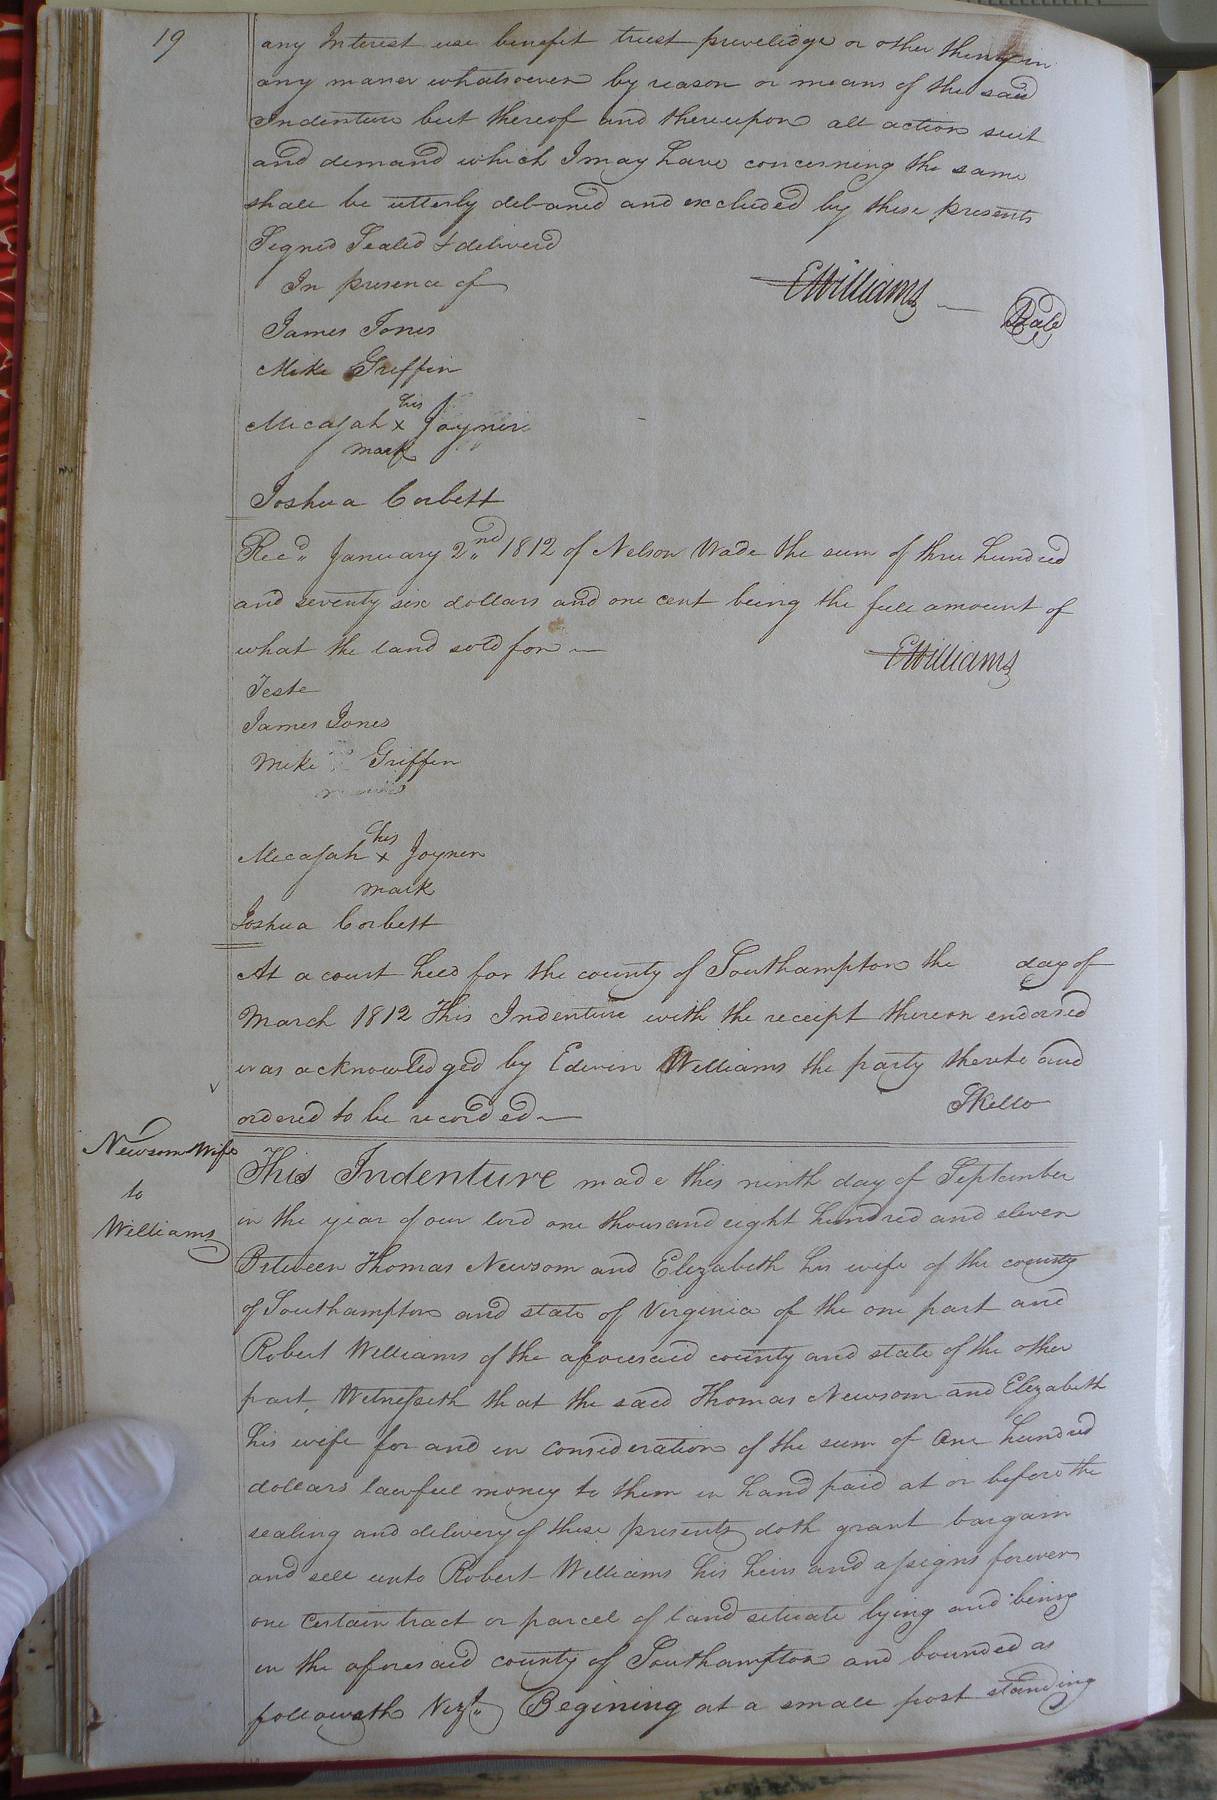 19
any Interest use benefit trust priveledge or other thing in
any maner whatsoever by reason or means of the said
Indenture but thereof and thereupon all action suit
and demand which I may have concerning the same
shall be utterly debared and excluded by these presents
Signed Sealed & deliverd
In presence of
EWilliams Seale
James Jones
Mike Griffin
his
Micajah x Joyner
mark
Joshua Corbett
Recd January 2nd 1812 of Nelson Wade the sum of three hundred
and seventy six dollars and one cent being the full amount of
what the land sold for
EWilliams
Teste
James Jones
Mike Griffin
his
Micajah x Joyner
mark
Joshua Corbett
At a court held for the county of Southampton the day of
March 1812 This Indenture with the receipt thereon endorsed
was acknowledged by Edwin Williams the party thereto and
ordered to be recorded
SKello
Newsom & Wife
to
Williams
This Indenture made this ninth day of September
in the year of our lord one thousand eight hundred and eleven
Between Thomas Newsom and Elizabeth his wife of the county
of Southampton and state of Virginia of the one part and
Robert Williams of the aforesaid county and state of the other
part Witnesseth that the said Thomas Newsom and Elizabeth
his wife for and in consideration of the sum of One hundred
dollars lawfull money to them in hand paid at or before the
sealing and delivery of these presents doth grant bargain
and sell unto Robert Williams his heirs and assigns forever
one certain tract or parcel of land situate lying and being
in the aforesaid county of Southampton and bounded as
followeth Vizt. Begining at a small post standing